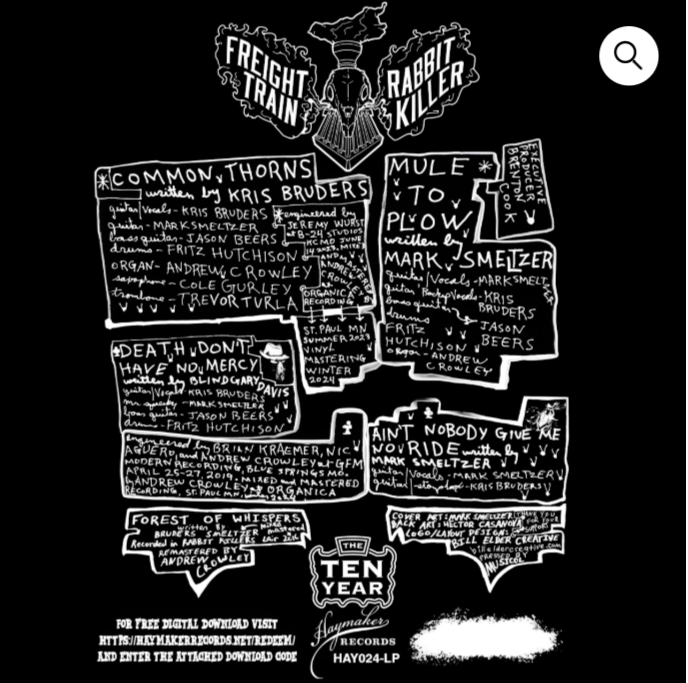 FREIGHT TRAIN
RABBIT KILLER
COMMON THORNS
written by KRIS BRUDERS
guitar/Vocals - KRIS BRUDERS
guitar - MARK SMELTZER
bass guitar - JASON BEERS
drums - FRITZ HUTCHISON
ORGAN - ANDREW CROWLEY
saxophone - COLE GURLEY
trombone - TREVOR TURLA
engineered by
JEREMY WURST
at B-24 STUDIOS
KCMO JUNE
14 2023, MIXED
AND MASTERED
ANDREW
CROWLEY
ORGANICA
RECORDING
ST. PAUL MN
SUMMER 2023
VINYL
MASTERING
WINTER
2024
MULE
TO
PLOW
written by
MARK SMELTZER
guitar/Vocals - MARK SMELTZER
guitar/Backup Vocals - KRIS
BRUDERS
bass guitar
JASON
BEERS
drums
FRITZ
HUTCHISON
Organ - ANDREW
CROWLEY
EXECUTIVE
PRODUCER
BRENTON
COOK
DEATH DON'T
HAVE NO MERCY
written by BLIND GARY
DAVIS
guitar/Vocals KRIS BRUDERS
MARK SMELTZER
bass guitar - JASON BEERS
drums - FRITZ HUTCHISON
engineered by BRIAN KRAEMER, NIC
AGUERO, and ANDREW CROWLEY at GFM
MODERN RECORDING, BLUE SPRINGS MO.
APRIL 25-27, 2019. MIXED and MASTERED
by ANDREW CROWLEY at ORGANICA
RECORDING, ST. PAUL, MN.
AIN'T NOBODY GIVE ME
NO RIDE written by
MARK SMELTZER
guitar/Vocals - MARK SMELTZER
guitar/ KRIS BRUDERS
FOREST OF WHISPERS
written by
BRUDERS SMELTZER
mixed
mastered
Recorded in RABBIT KILLERS LAIR 2014
REMASTERED BY
ANDREW
CROWLEY
COVER ART: MARK SMELTZER
BACK ART: HECTOR CASANOVA
LOGO/LAYOUT DESIGN:
BILL ELDER CREATIVE
billeldercreative.com
PRESSED BY
MUSICOL
THANK YOU
FOR YOUR
SUPPORT
THE
TEN
YEAR
Haymaker
RECORDS
HAY024-LP
FOR FREE DIGITAL DOWNLOAD VISIT
HTTPS://HAYMAKERRECORDS.NET/REDEEM/
AND ENTER THE ATTACHED DOWNLOAD CODE